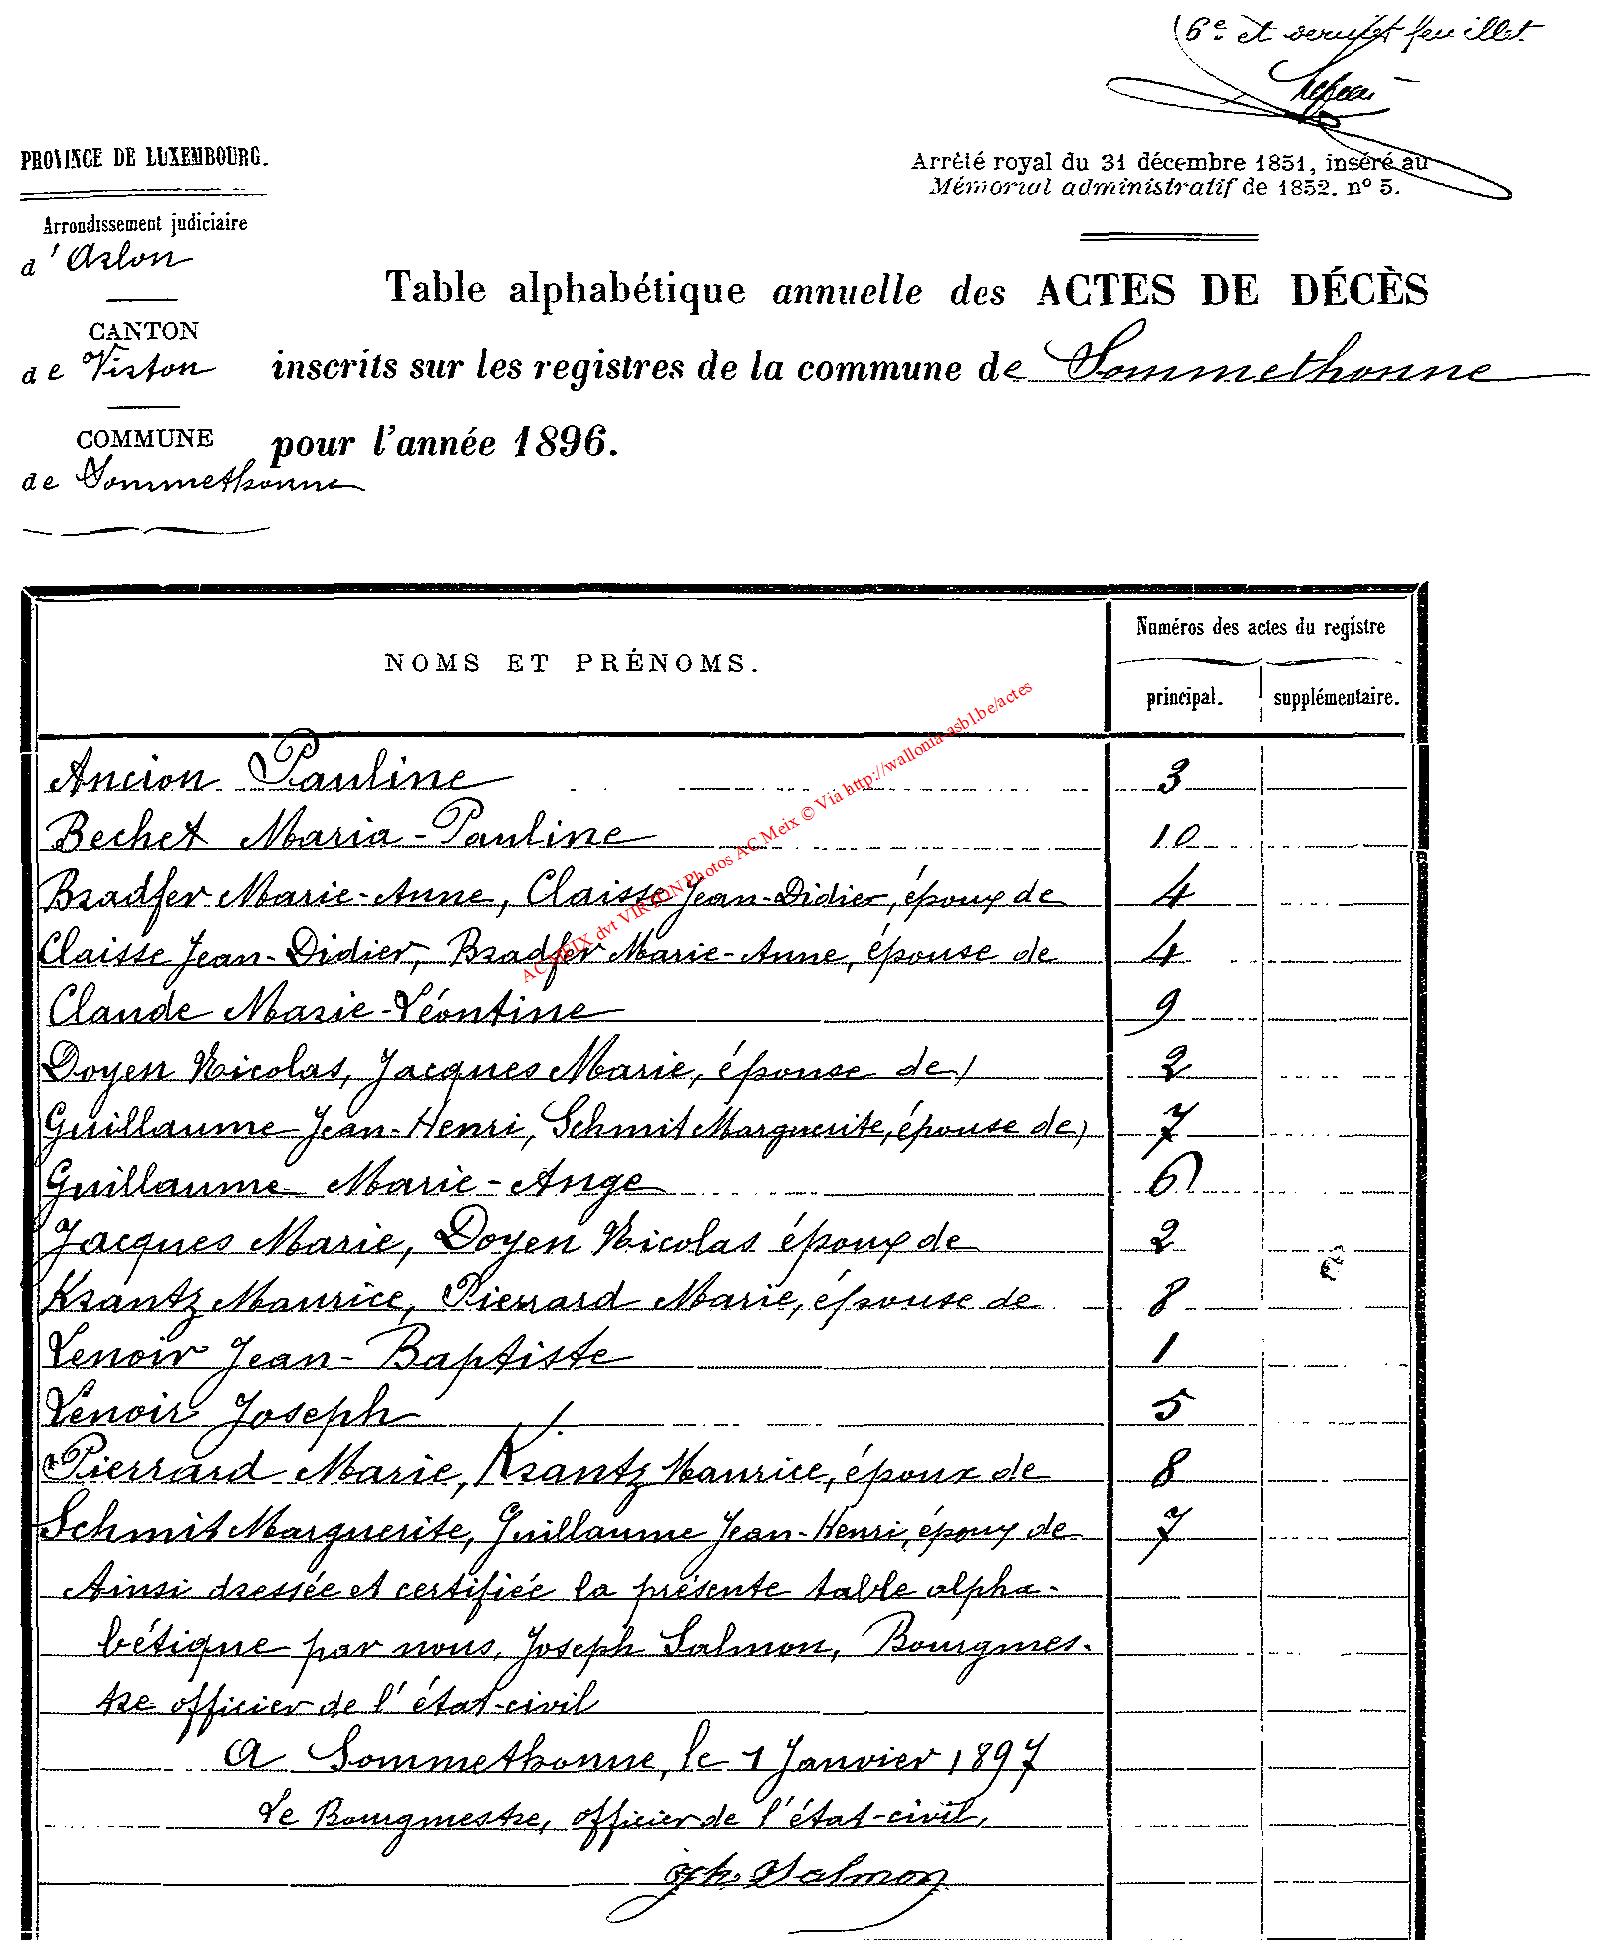 6e et dernier feuillet
PROVINCE DE LUXEMBOURG.
Arrêté royal du 31 décembre 1851, inséré au
Mémorial administratif de 1852. n° 5.
Arrondissement judiciaire
d'Arlon
Table alphabétique annuelle des ACTES DE DÉCÈS
CANTON
de Virton
inscrits sur les registres de la commune de Sommethonne
COMMUNE
pour l'année 1896.
de Sommethonne
NOMS ET PRÉNOMS.
Numéros des actes du registre
principal. supplémentaire.
Ancion Pauline 3
Bechet Maria-Pauline 10
Bradfer Marie-Anne, Claisse Jean-Didier, époux de 4
Claisse Jean-Didier, Bradfer Marie-Anne, épouse de 4
Claude Marie-Léontine 9
Doyen Nicolas, Jacques Marie, épouse de) 2
Guillaume Jean-Henri, Schmit Marguerite, épouse de) 7
Guillaume Marie-Ange 6
Jacques Marie, Doyen Nicolas époux de 2
Krantz Maurice, Pierrard Marie, épouse de 8
Lenoir Jean-Baptiste 1
Lenoir Joseph 5
Pierrard Marie, Krantz Maurice, époux de 8
Schmit Marguerite, Guillaume Jean-Henri, époux de 7
Ainsi dressée et certifiée la présente table alpha-
bétique par nous, Joseph Salmon, Bourgmes-
tre officier de l'état-civil
A Sommethonne, le 1 Janvier 1897
Le Bourgmestre, officier de l'état-civil,
Jph. Salmon
AC MEIX dvt VIRTON Photos AC Meix © Via http://wallonia-asbl.be/actes